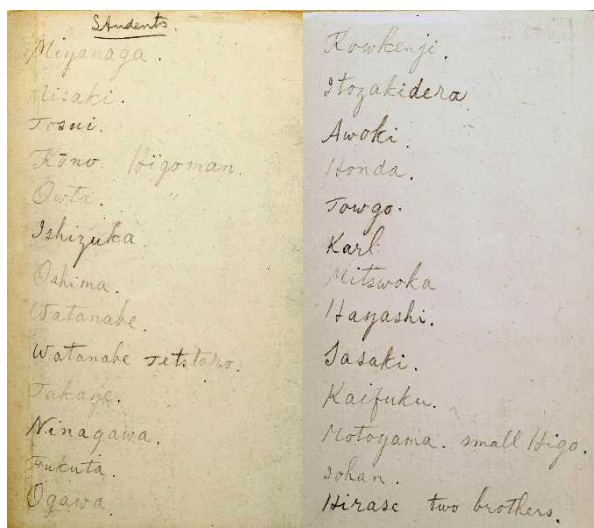 Students.
Miyanaga.
Misaki.
Tosui.
Kōno. Higoman.
Owta. "
Ishizuka
Oshima.
Watanabe.
Watanabe
Takaye.
Ninagawa.
Fukuta.
Ogawa.
Kowkenji.
Itozakidera
Awoki.
Honda.
Towgo.
Karl
Mitswoka
Hayashi.
Sasaki.
Kaifuku.
Motoyama. small Higo.
Johan.
Hirase two brothers.